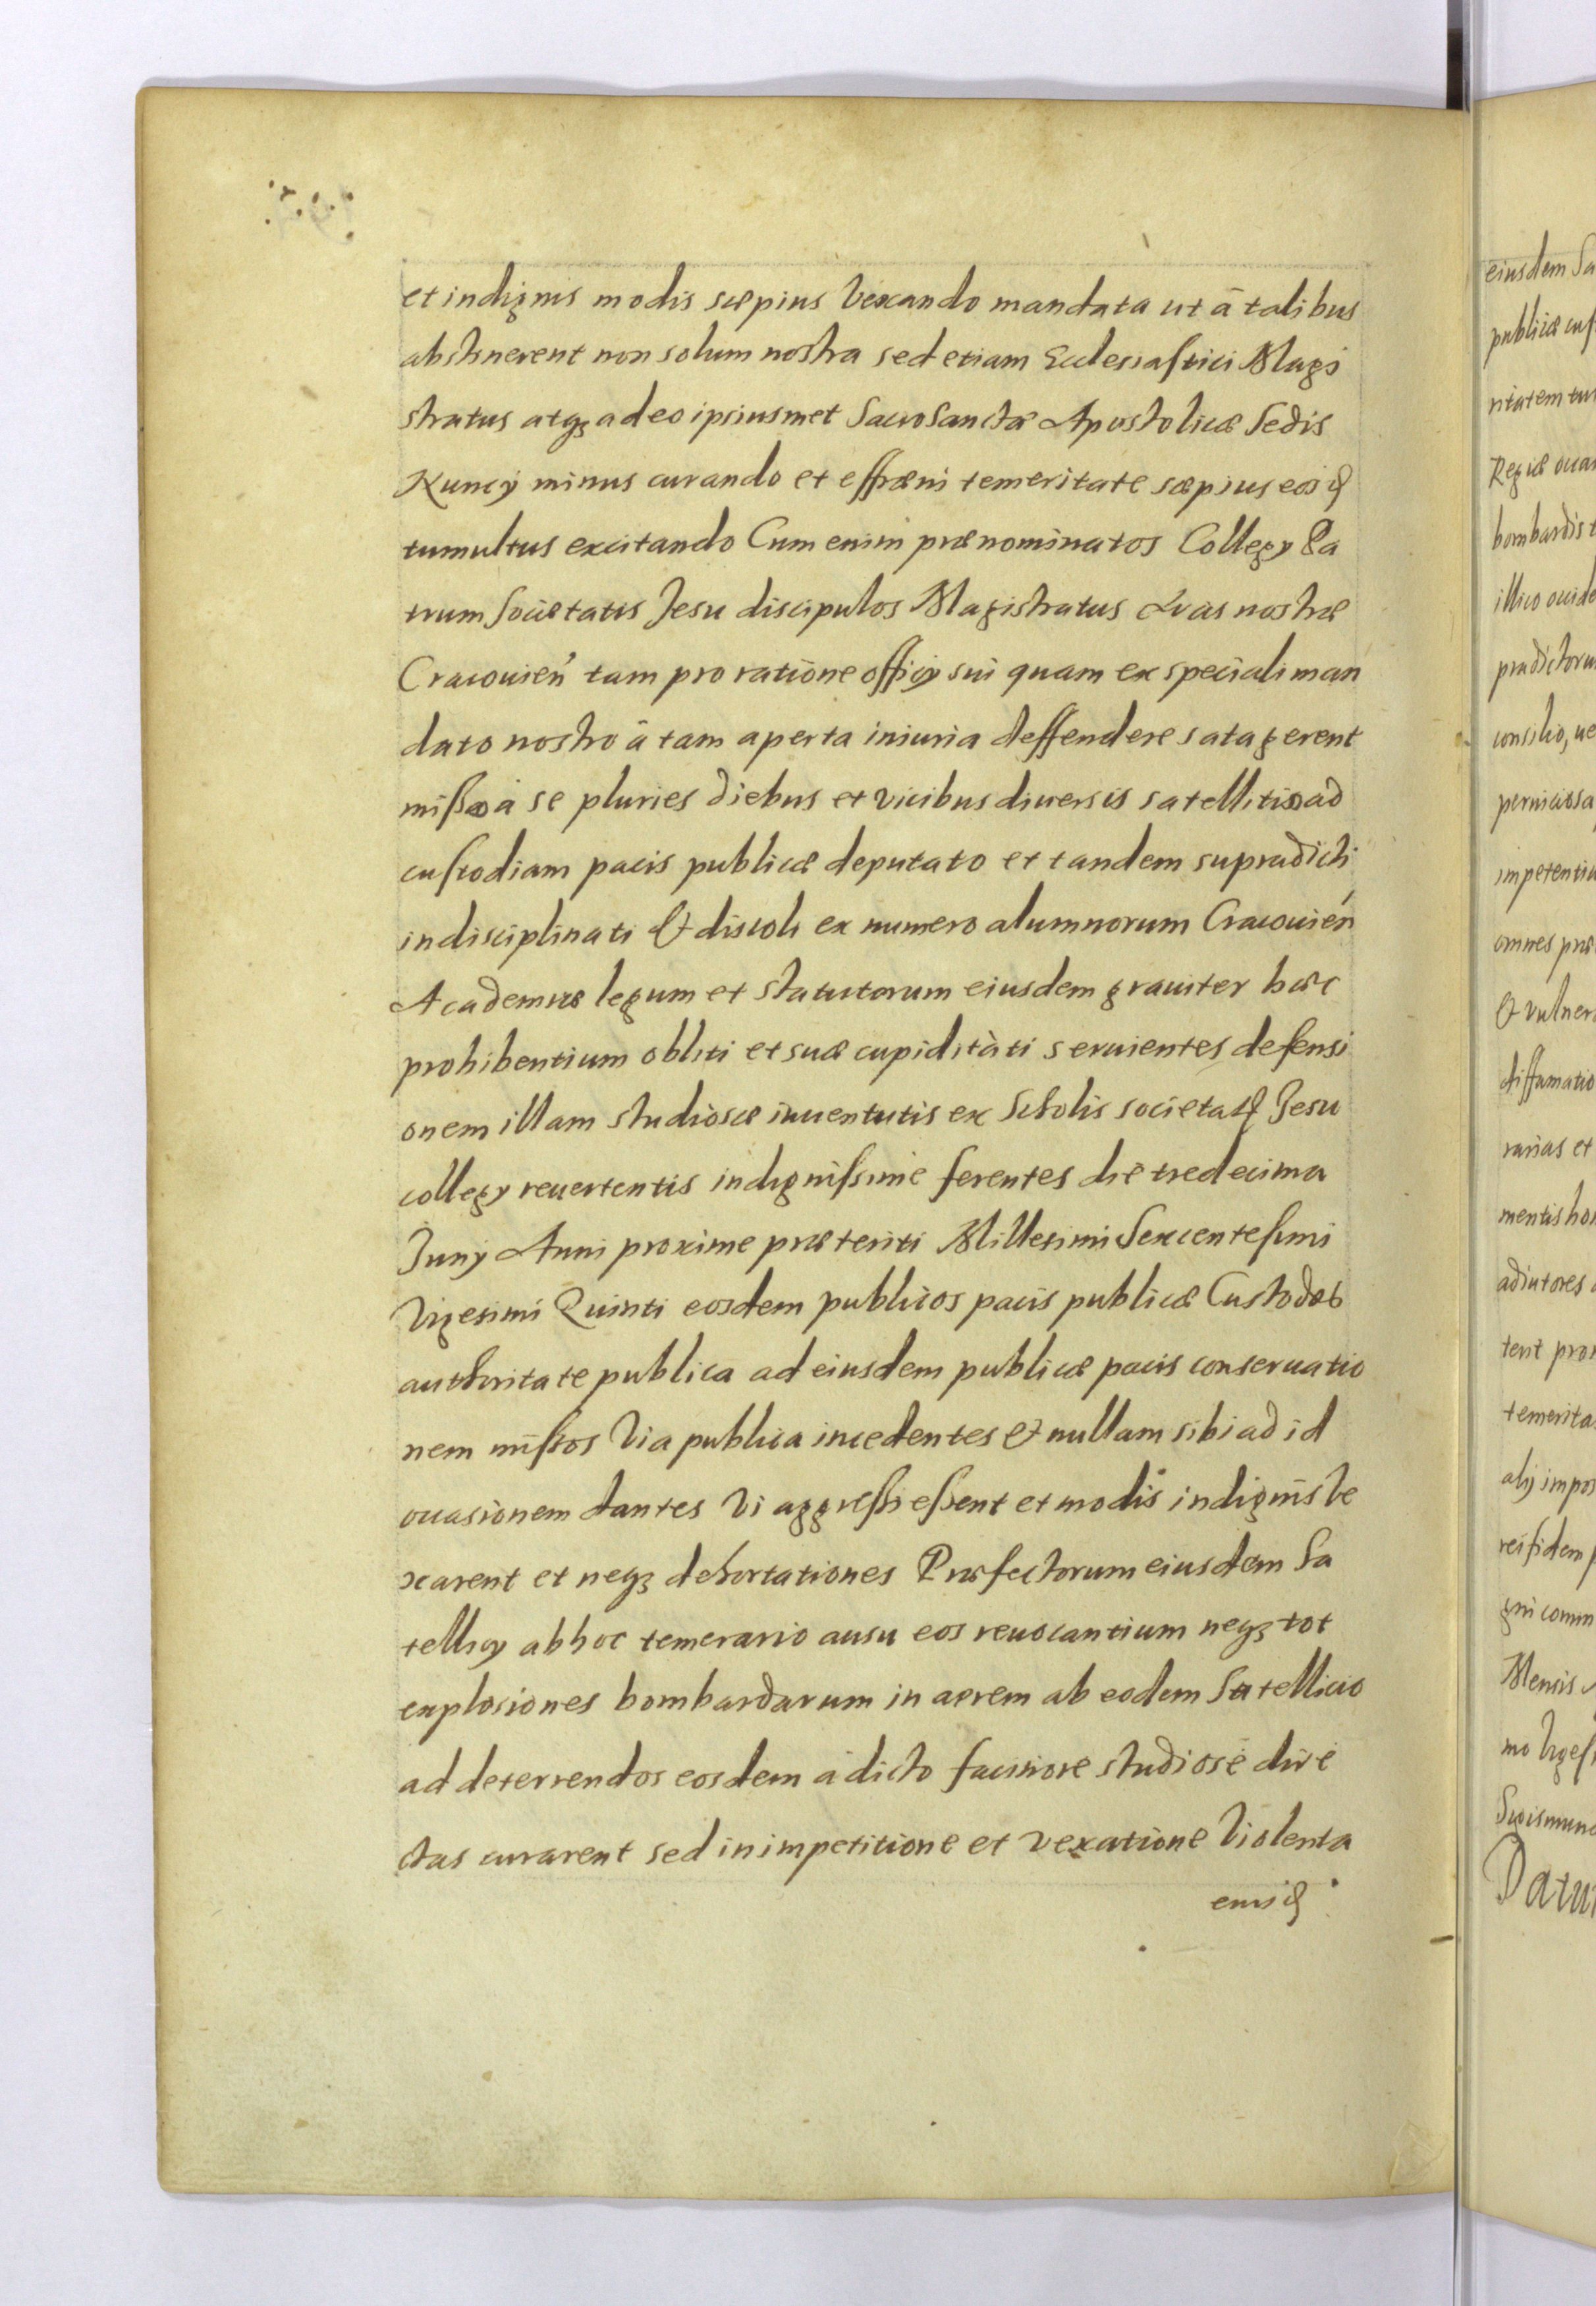 et indignis modis sæpius vexando mandata ut â talibus
abstinerent non solum nostra sed etiam Ecclesiastici Magi
stratus atqȝ adeo ipsiusmet SacroSanctæ Apostolicæ Sedis
Nuncÿ minus curando et effræni temeritate sæpius eosꝗ
tumultus excitando Cum enim prænominatos Collegÿ Pa
trum Societatis Jesu discipulos Magistratus Arcis nostræ
Cracouień tam pro ratione officÿ sui quam ex speciali man
dato nostro â tam aperta iniuria deffendere satagerent
misso à se pluries diebus et vicibus diuersis satellitio ad
custodiam pacis publicæ deputato et tandem supradicti
indisciplinati & discoli ex numero alumnorum Cracouień
Academiæ legum et statutorum eiusdem grauiter hæc
prohibentium obliti et suæ cupiditàti seruientes defensi
onem illam studiosæ iuuentutis ex Scholis societatꝭ Jesu
collegÿ reuertentis indignissime ferentes die tredecima
Junÿ Anni proxime præteriti Millesimi Sexcentesimi
Vigesimi Quinti eosdem publicos pacis publicæ Custodes
authoritate publica ad eiusdem publicæ pacis conseruatio
nem missos via publica incedentes & nullam sibi ad id
occasionem dantes vi aggressi essent et modis indignis ve
xarent et neqȝ dehortationes Præfectorum eiusdem Sa
tellicÿ ab hoc temerario ausu eos reuocantium neqȝ tot
explosiones bombardarum in aerem ab eodem Satellicio
ad deterrendos eosdem à dicto facinore studiosè dire
ctas curarent sed in impetitione et vexatione violenta
eiusꝗ
eiusdem Sa
publicæ cus
ritatem tu
Regiæ occa
bombardis t
illico occide
prædictoru
consilio, ue
perniciosa
impetentiu
omnes præ
& vulner
diffamatio
rarias et
mentis ho
adiutores
tent pro
temerita
alÿ impo
rei fidem
gni comm
Mensis
mo Viges
Sigismund
Datu